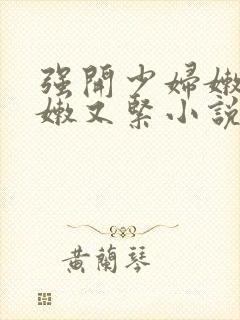 强開少婦嫩
嫩又緊小說
黄蘭琴